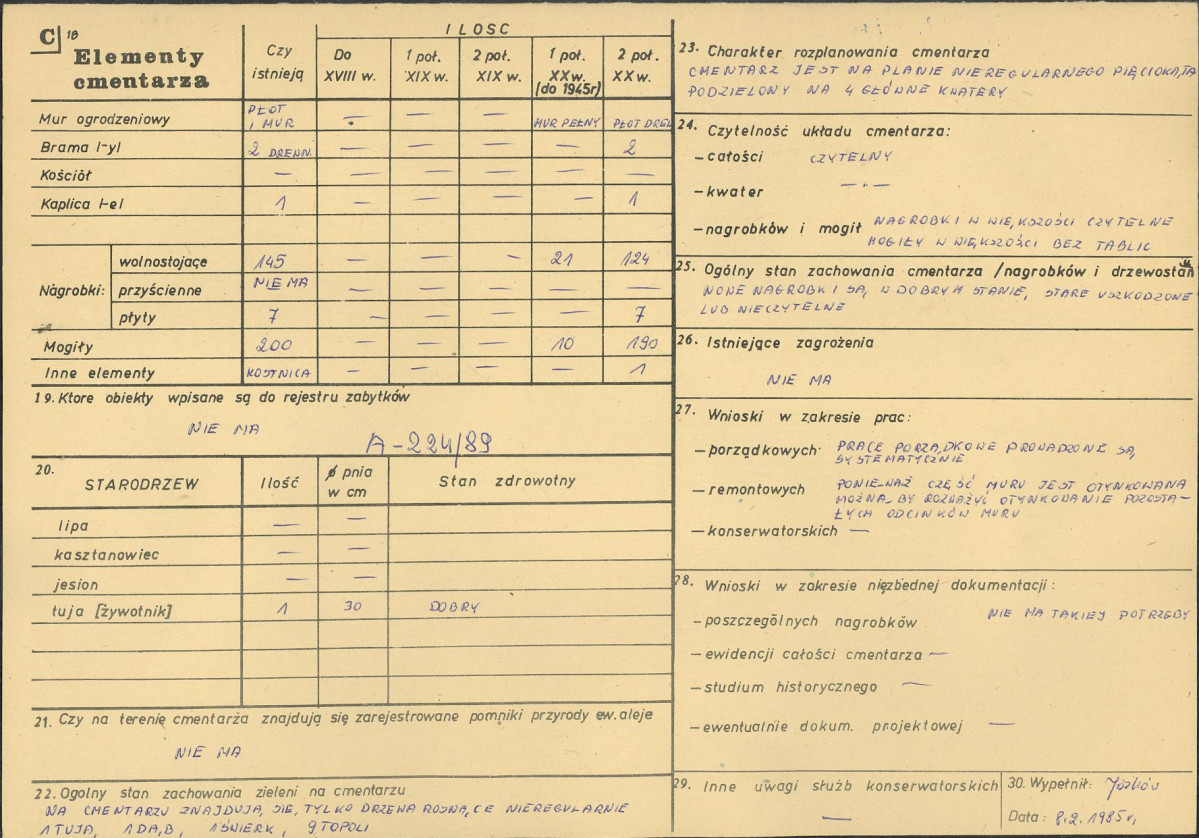 C 18
Elementy cmentarza
Czy istnieją
ILOSC
Do XVIII w.
1 poł. XIX w.
2 poł. XIX w.
1 poł. XX w. (do 1945r)
2 poł. XX w.
Mur ogrodzeniowy PŁOT I MUR — — — MUR PEŁNY PŁOT DREW
Brama 1-yl 2 DREWN. — — — — 2
Kościół — — — — — —
Kaplica 1-el 1 — — — — 1
Nagrobki:
wolnostojące 145 — — — 21 124
przyścienne NIE MA — — — — —
płyty 7 — — — — 7
Mogiły 200 — — — 10 190
Inne elementy KOSTNICA — — — — 1
19. Ktore obiekty wpisane są do rejestru zabytków
NIE MA
A-224/89
20. STARODRZEW Ilość ø pnia w cm Stan zdrowotny
lipa — —
kasztanowiec — —
jesion — —
tuja [żywotnik] 1 30 DOBRY
21. Czy na terenie cmentarza znajdują się zarejestrowane pomniki przyrody ew. aleje
NIE MA
22. Ogolny stan zachowania zieleni na cmentarzu
NA CMENTARZU ZNAJDUJĄ SIĘ TYLKO DRZEWA ROSNĄCE NIEREGULARNIE
1 TUJA, 1 DĄB, 1 ŚWIERK, 9 TOPOLI
23. Charakter rozplanowania cmentarza
CMENTARZ JEST NA PLANIE NIEREGULARNEGO PIĘCIOKĄTA
PODZIELONY NA 4 GŁÓWNE KWATERY
24. Czytelność układu cmentarza:
— całości CZYTELNY
— kwater —"—
— nagrobków i mogił NAGROBKI W WIĘKSZOŚCI CZYTELNE
MOGIŁY W WIĘKSZOŚCI BEZ TABLIC
25. Ogólny stan zachowania cmentarza /nagrobków i drzewostan
NOWE NAGROBKI SĄ W DOBRYM STANIE, STARE USZKODZONE
LUB NIECZYTELNE
26. Istniejące zagrożenia
NIE MA
27. Wnioski w zakresie prac:
— porządkowych PRACE PORZĄDKOWE PROWADZONE SĄ
SYSTEMATYCZNIE
— remontowych PONIEWAŻ CZĘŚĆ MURU JEST OTYNKOWANA
MOŻNA BY ROZWAŻYĆ OTYNKOWANIE POZOSTA-
ŁYCH ODCINKÓW MURU
— konserwatorskich —
28. Wnioski w zakresie nięzbednej dokumentacji:
NIE MA TAKIEJ POTRZEBY
— poszczególnych nagrobków
— ewidencji całości cmentarza —
— studium historycznego —
— ewentualnie dokum. projektowej —
29. Inne uwagi służb konserwatorskich
—
30. Wypełnił:
Data: 8.2.1985r,